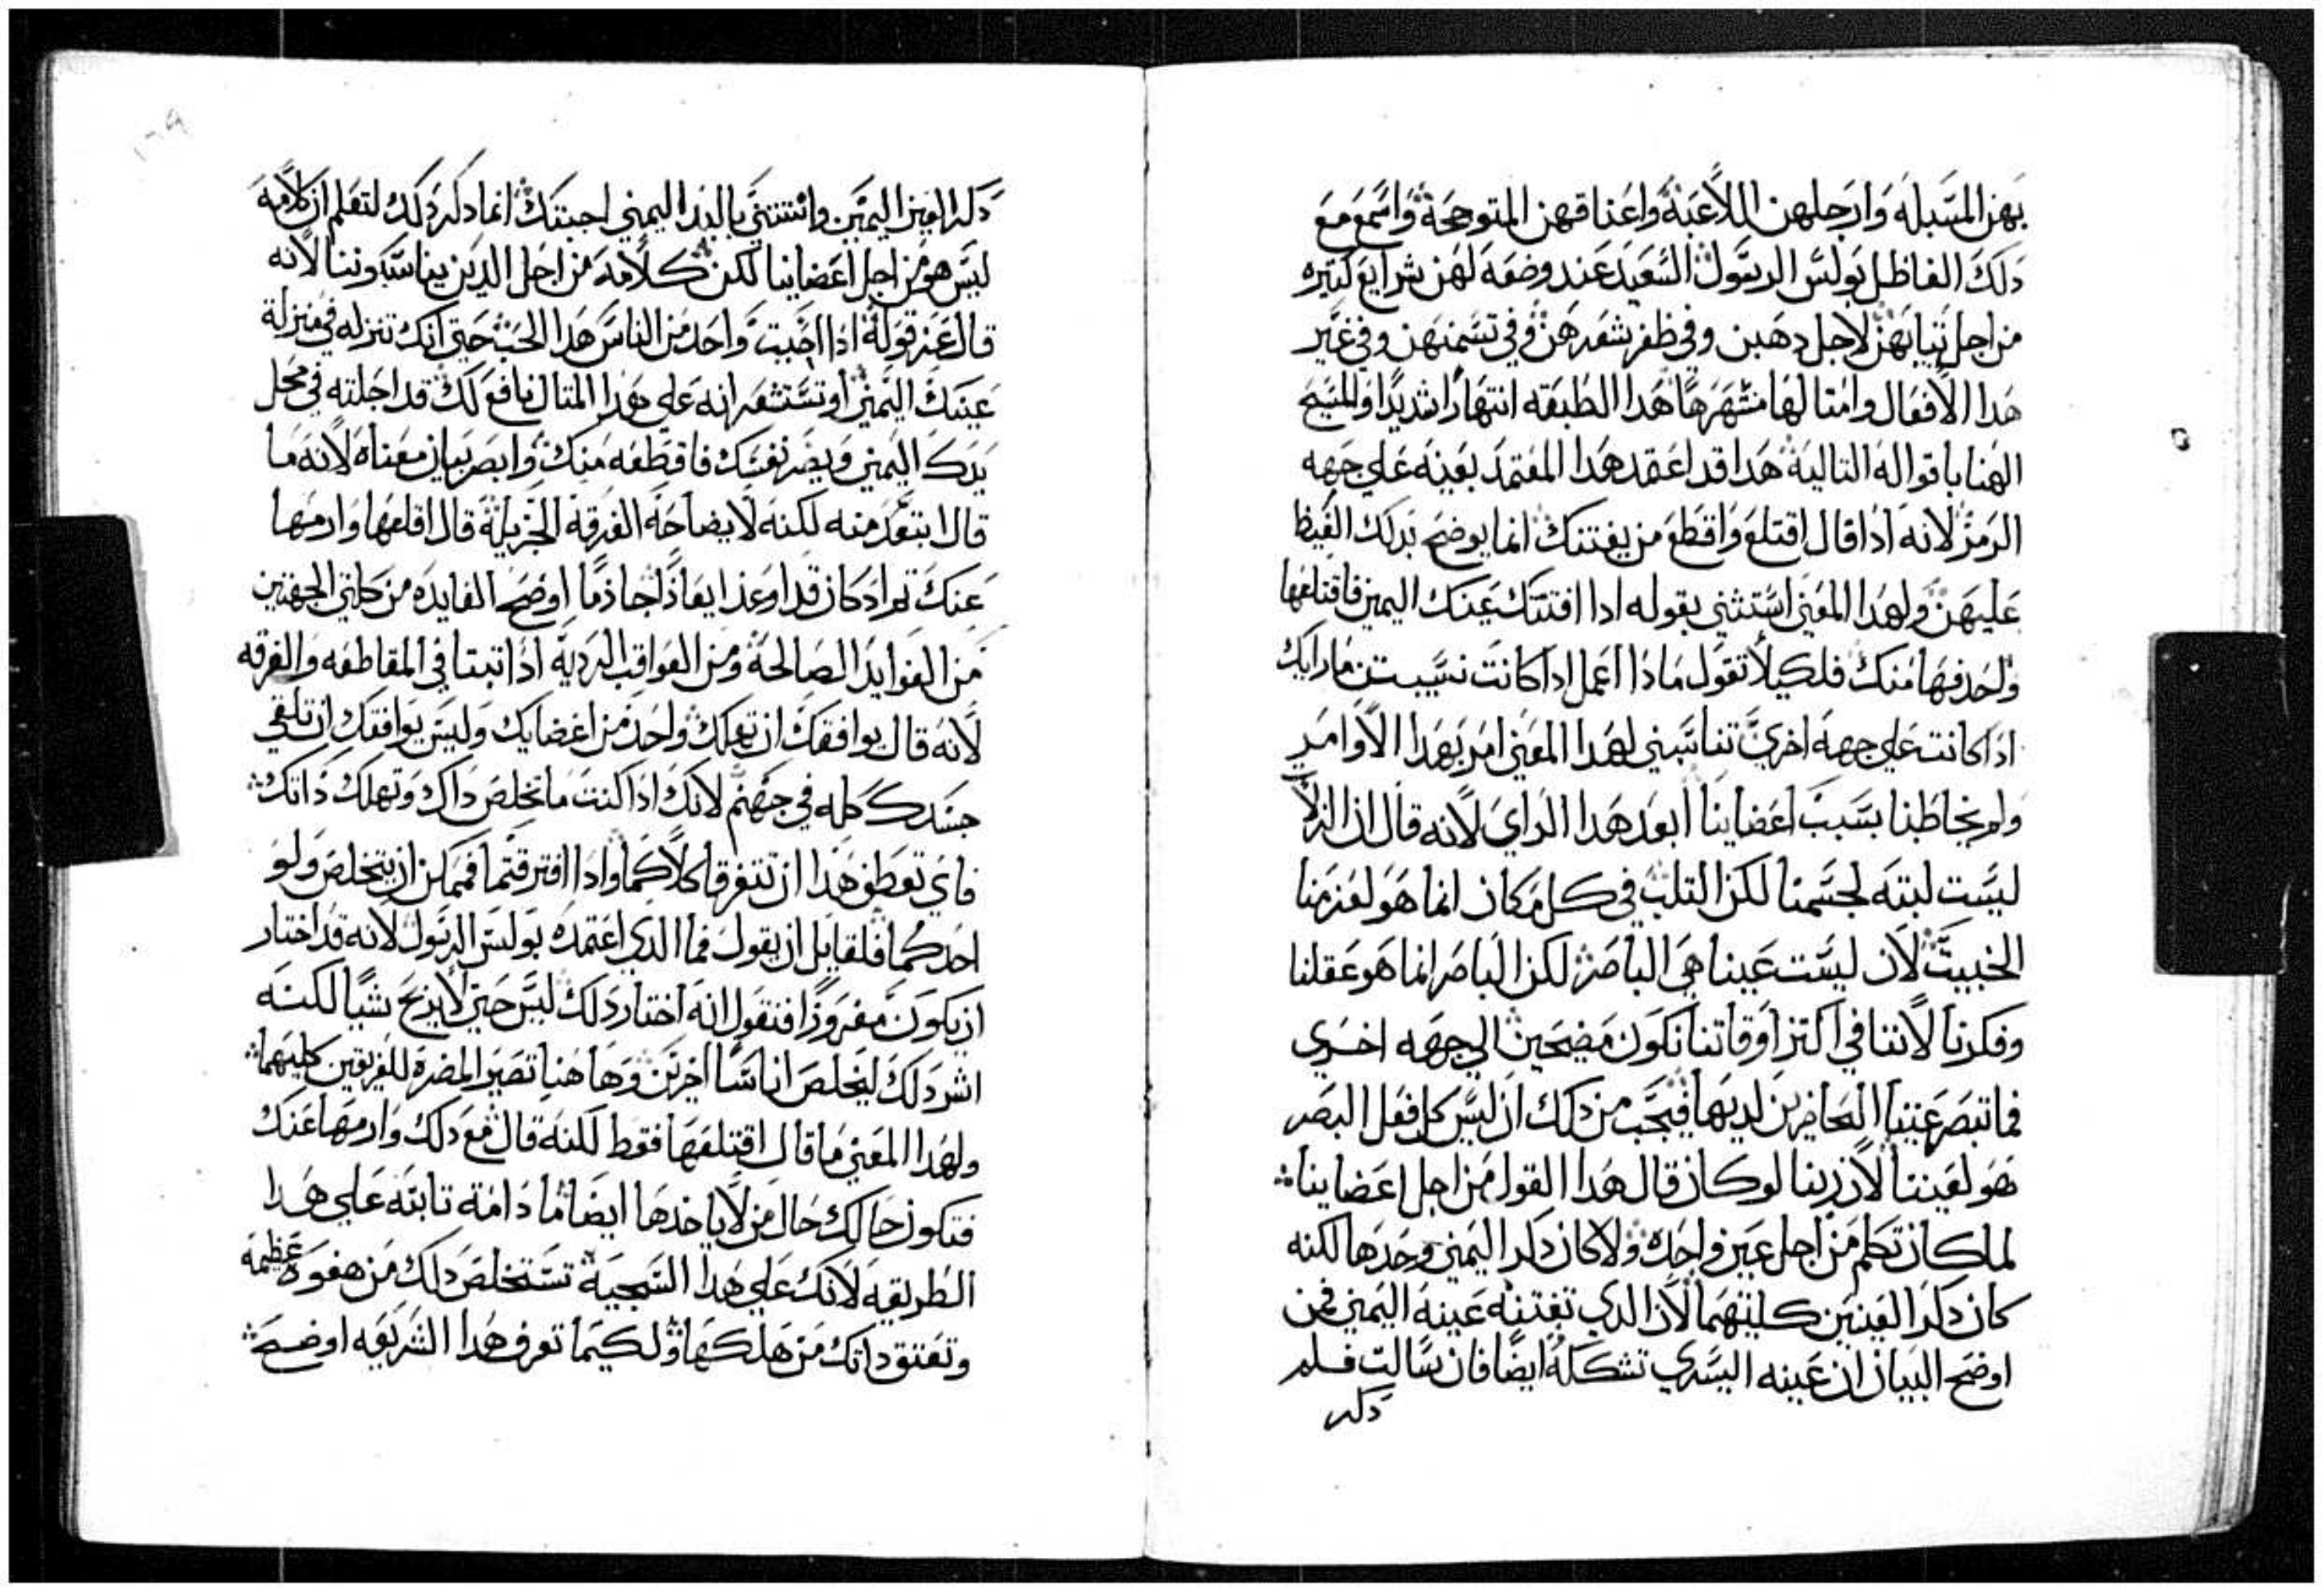 بهن المسبله وارجلهن اللاعبة واعناقهن المتوجحة واسمع مع
دلك الفاظل بولس الرسول السعيد عند وضعه لهن شرايع كتيره
من اجل تيابهن لاجل دهبن وفي ظفر شعرهن وفي تسمنهن وفي غير
هدا الافعال وامتالها مشهرها هدا الطبقه انتهارا شديدا والمسيح
الهنا باقواله التالية هدا قد اعقد هدا المعتمد بعينه علي جهه
الرمز لانه ادا قال اقتلع واقطع من يفتنك انما يوضح بدلك الغيظ
عليهن ولهدا المعني استثني بقوله ادا افتنتك عينك اليمين فاقتلعها
واحدفها منك فلكيلا تقول مادا اعمل ادا كانت نسيبتن مارايك
ادا كانت علي جهة اخري تناسبني لهدا المعني امر بهدا الاوامر
ولم يخاطبنا بسبب اعضاينا ابعد هدا الراي لانه قال ان الزلات
ليست لبته لجسمنا لكن التلب في كل مكان انما هو لعزمنا
الخبيت لان ليست عينا هي الباصر لكن الباصر انما هو عقلنا
وفكرنا لاننا في اكتر اوقاتنا نكون مضحين الي جهه اخري
فما تبصر عيننا الحاضرين لديها فيجب من دلك ان ليس كل فعل البصر
هو لعيننا لان ربنا لو كان قال هدا القول من اجل اعضاينا
لما كان تكلم من اجل عين واحده ولا كان دكر اليمين وحدها لكنه
كان دكر العينين كلتيهما لان الدي تفتنه عينه اليمين فمن
اوضح البيان ان عينه اليسري تشككه ايضا فان سالت فلم
دكر
دكر العين اليمين واستتني باليد اليمني اجبتك انما دكر دلك لتعلم ان كلامه
ليس هو من اجل اعضاينا لكن كلامه من اجل الدين يناسبوننا لانه
قال عن قوله ادا احببت واحد من الناس هدا الحب حتي انك تنزله في منزلة
عينك اليمين او تستشعر انه علي هدا المتال نافع لك قد اجلته في محل
يدك اليمين ويضر نفسك فاقطعه منك وابصر بيان معناه لانه ما
قال ابتعد منه لكنه لايضاحه الفرقة الجزيلة قال اقلعها وارمها
عنك تم اد كان قد اوعز ايعازا جازما اوضح الفايده من كلتي الجهتين
من الفوايد الصالحة ومن العواقب الردية ادا تبتا في المقاطعه والفرقه
لانه قال يوافقك ان تهلك واحد من اعضايك وليس يوافقك ان تلقي
جسدك كله في جهنم لانك ادا كنت ما تخلص داك وتهلك داتك
فاي تعطف هدا ان تتغرقا كلاكما وادا افترقتما فممكن ان يتخلص ولو
احدكما فلقايل ان يقول فما الدي اعتمده بولس الرسول لانه قد اختار
ان يكون مفروزا فتقول انه اختار دلك ليس حتي لا يربح شيا لكنه
اثر دلك ليخلص اناسا اخرين وها هنا تصير المضرة للفريقين كليهما
ولهدا المعني ما قال اقتلعها فقط لكنه قال مع دلك وارمها عنك
فتكون حالك حال من لا ياخدها ايضا ما دامة تابته علي هدا
الطريقه لانك علي هدا السجية تستخلص دلك من هفوة عظيمه
وتعتق داتك من هلكها ولكيما تعرف هدا الشريعه اوضح